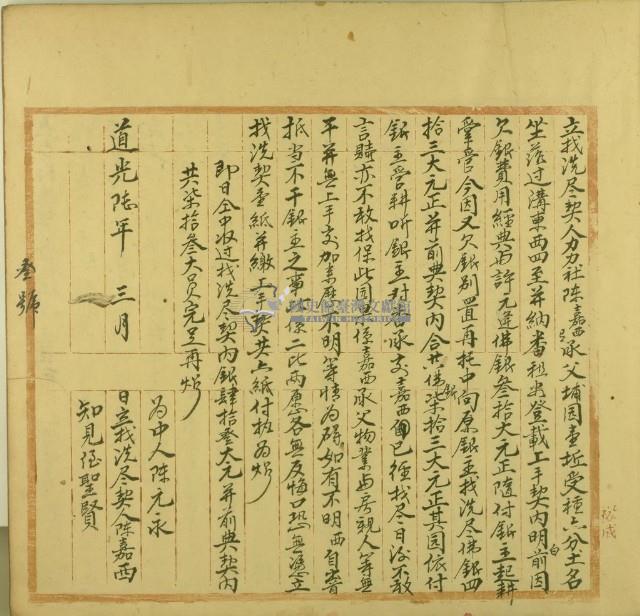 立找洗尽契人力力社陳嘉西引承父埔园壹坵受種六分土名
坐落过溝東西四至并納番租出登載上手契內明白前因
欠銀費用經典与許元逆佛銀叁拾大元正隨付銀主起耕
掌管今因又欠銀別置再托中向原銀主找洗尽佛銀四
拾三大元正并前典契內合共佛銀柒拾三大元正其园依付
銀主管耕听銀主对佃承交嘉西园已經找尽日後不敢
言贖亦不敢找保此园係嘉西承父物業与房親人等無
干并無上手交加來歷不明等情為碍如有不明西自出首
抵当不干銀主之事此係二比兩愿各無反悔口恐無憑立
找洗契壹紙并繳上手契共六紙付执為炤
即日仝中收过找洗尽契內銀肆拾叁大元并前典契內
共柒拾叁大員完足再炤
為中人陳元承
道光陸年 三月 日立找洗尽契人陳嘉西
知見侄聖賢
叁號
國史館臺灣文獻館
TAIWAN HISTORICA